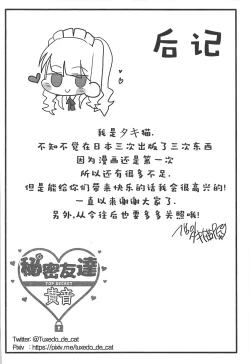 后记
我是タキ猫.
不知不觉在日本三次出版了三次东西
因为漫画还是第一次
所以还有很多不足.
但是能给你们带来快乐的话我会很高兴的!
一直以来谢谢大家了.
另外,从今往后也要多多关照哦!
タキ猫
秘密友達
TOP SECRET
貴音
Twitter: @Tuxedo_de_cat
Pixiv : https://pixiv.me/tuxedo_de_cat